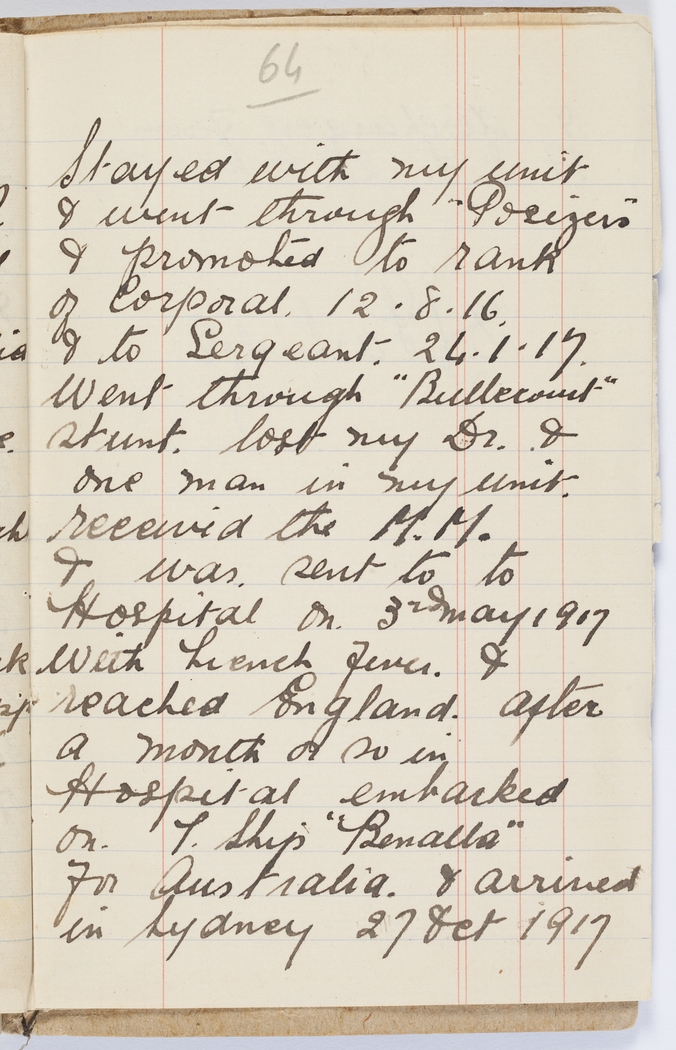 64
Stayed with my unit
& went through "Poseirs"
& promoted to rank
of Corporal. 12.8.16.
& to Sergeant. 24.1.17.
Went through "Bullecourt"
stunt. lost my Dr. &
one man in my unit.
receivid the M.M.
& was. sent to to
Hospital on. 3rd may 1917
With trench fever. &
reached England. after
a month or so in
Hospital embarked
on. T. Ship "Benalla"
for Australia. & arrived
in Sydney 27 Oct 1917